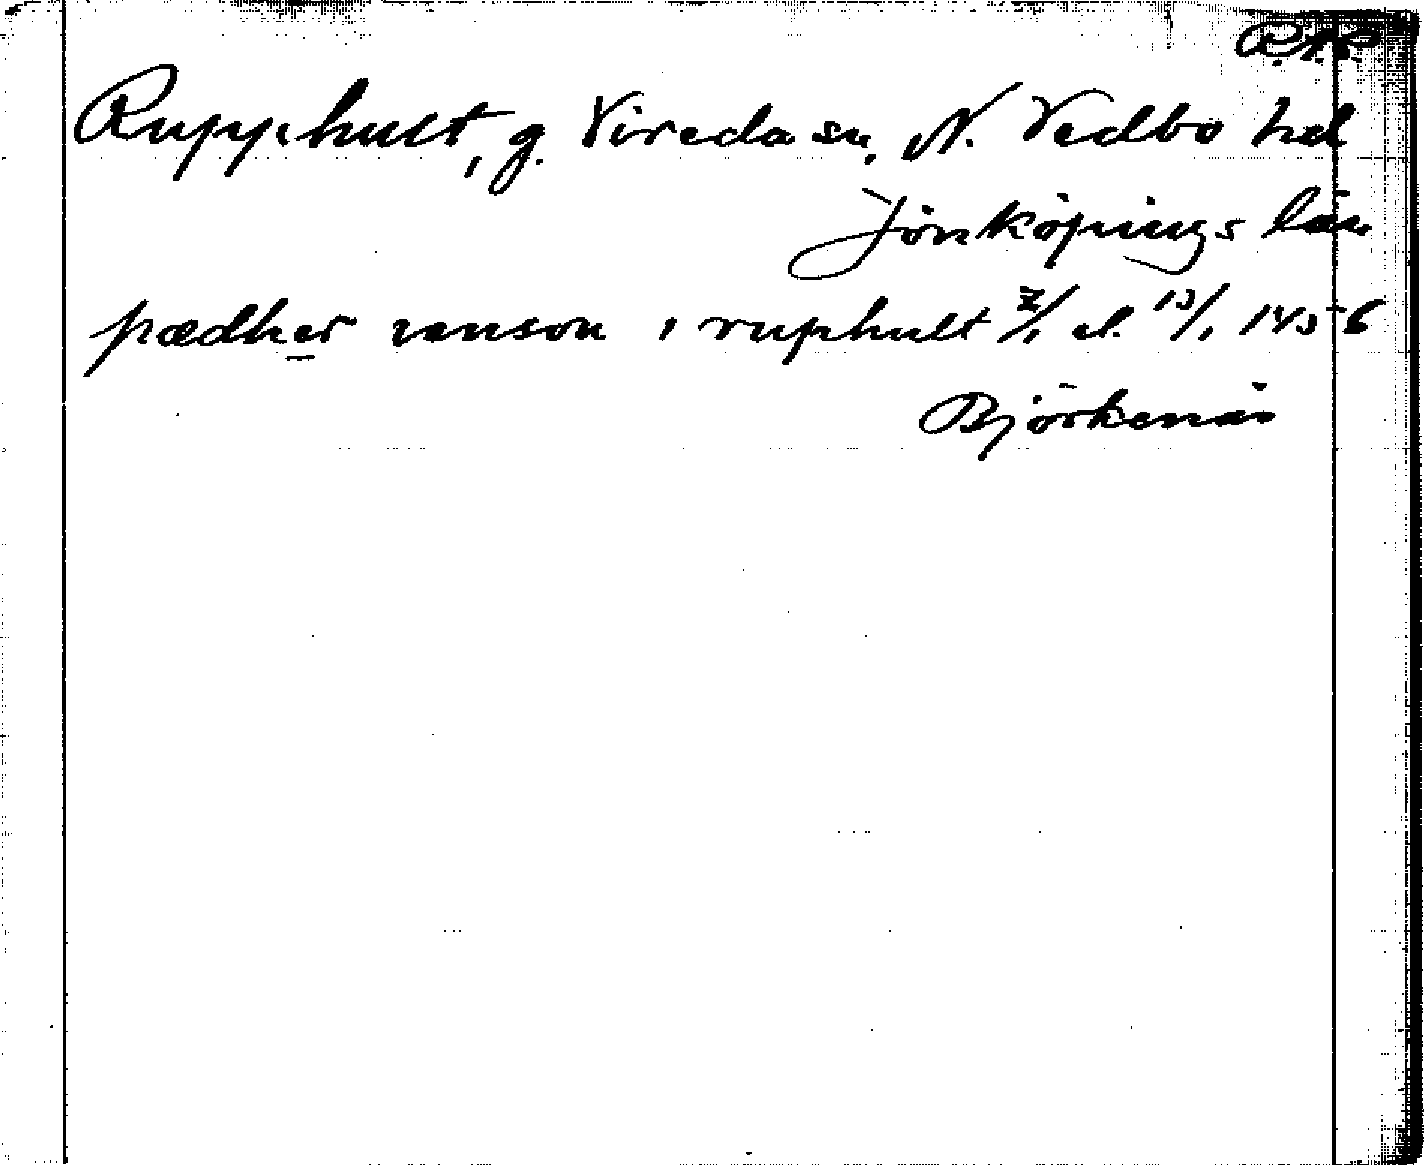 Rupphult, g. Vireda sn, N. Vedbo hd
Jönköpings län
pædher vanson i ruphult 7/1 el. 13/1 1456
Björkenäs